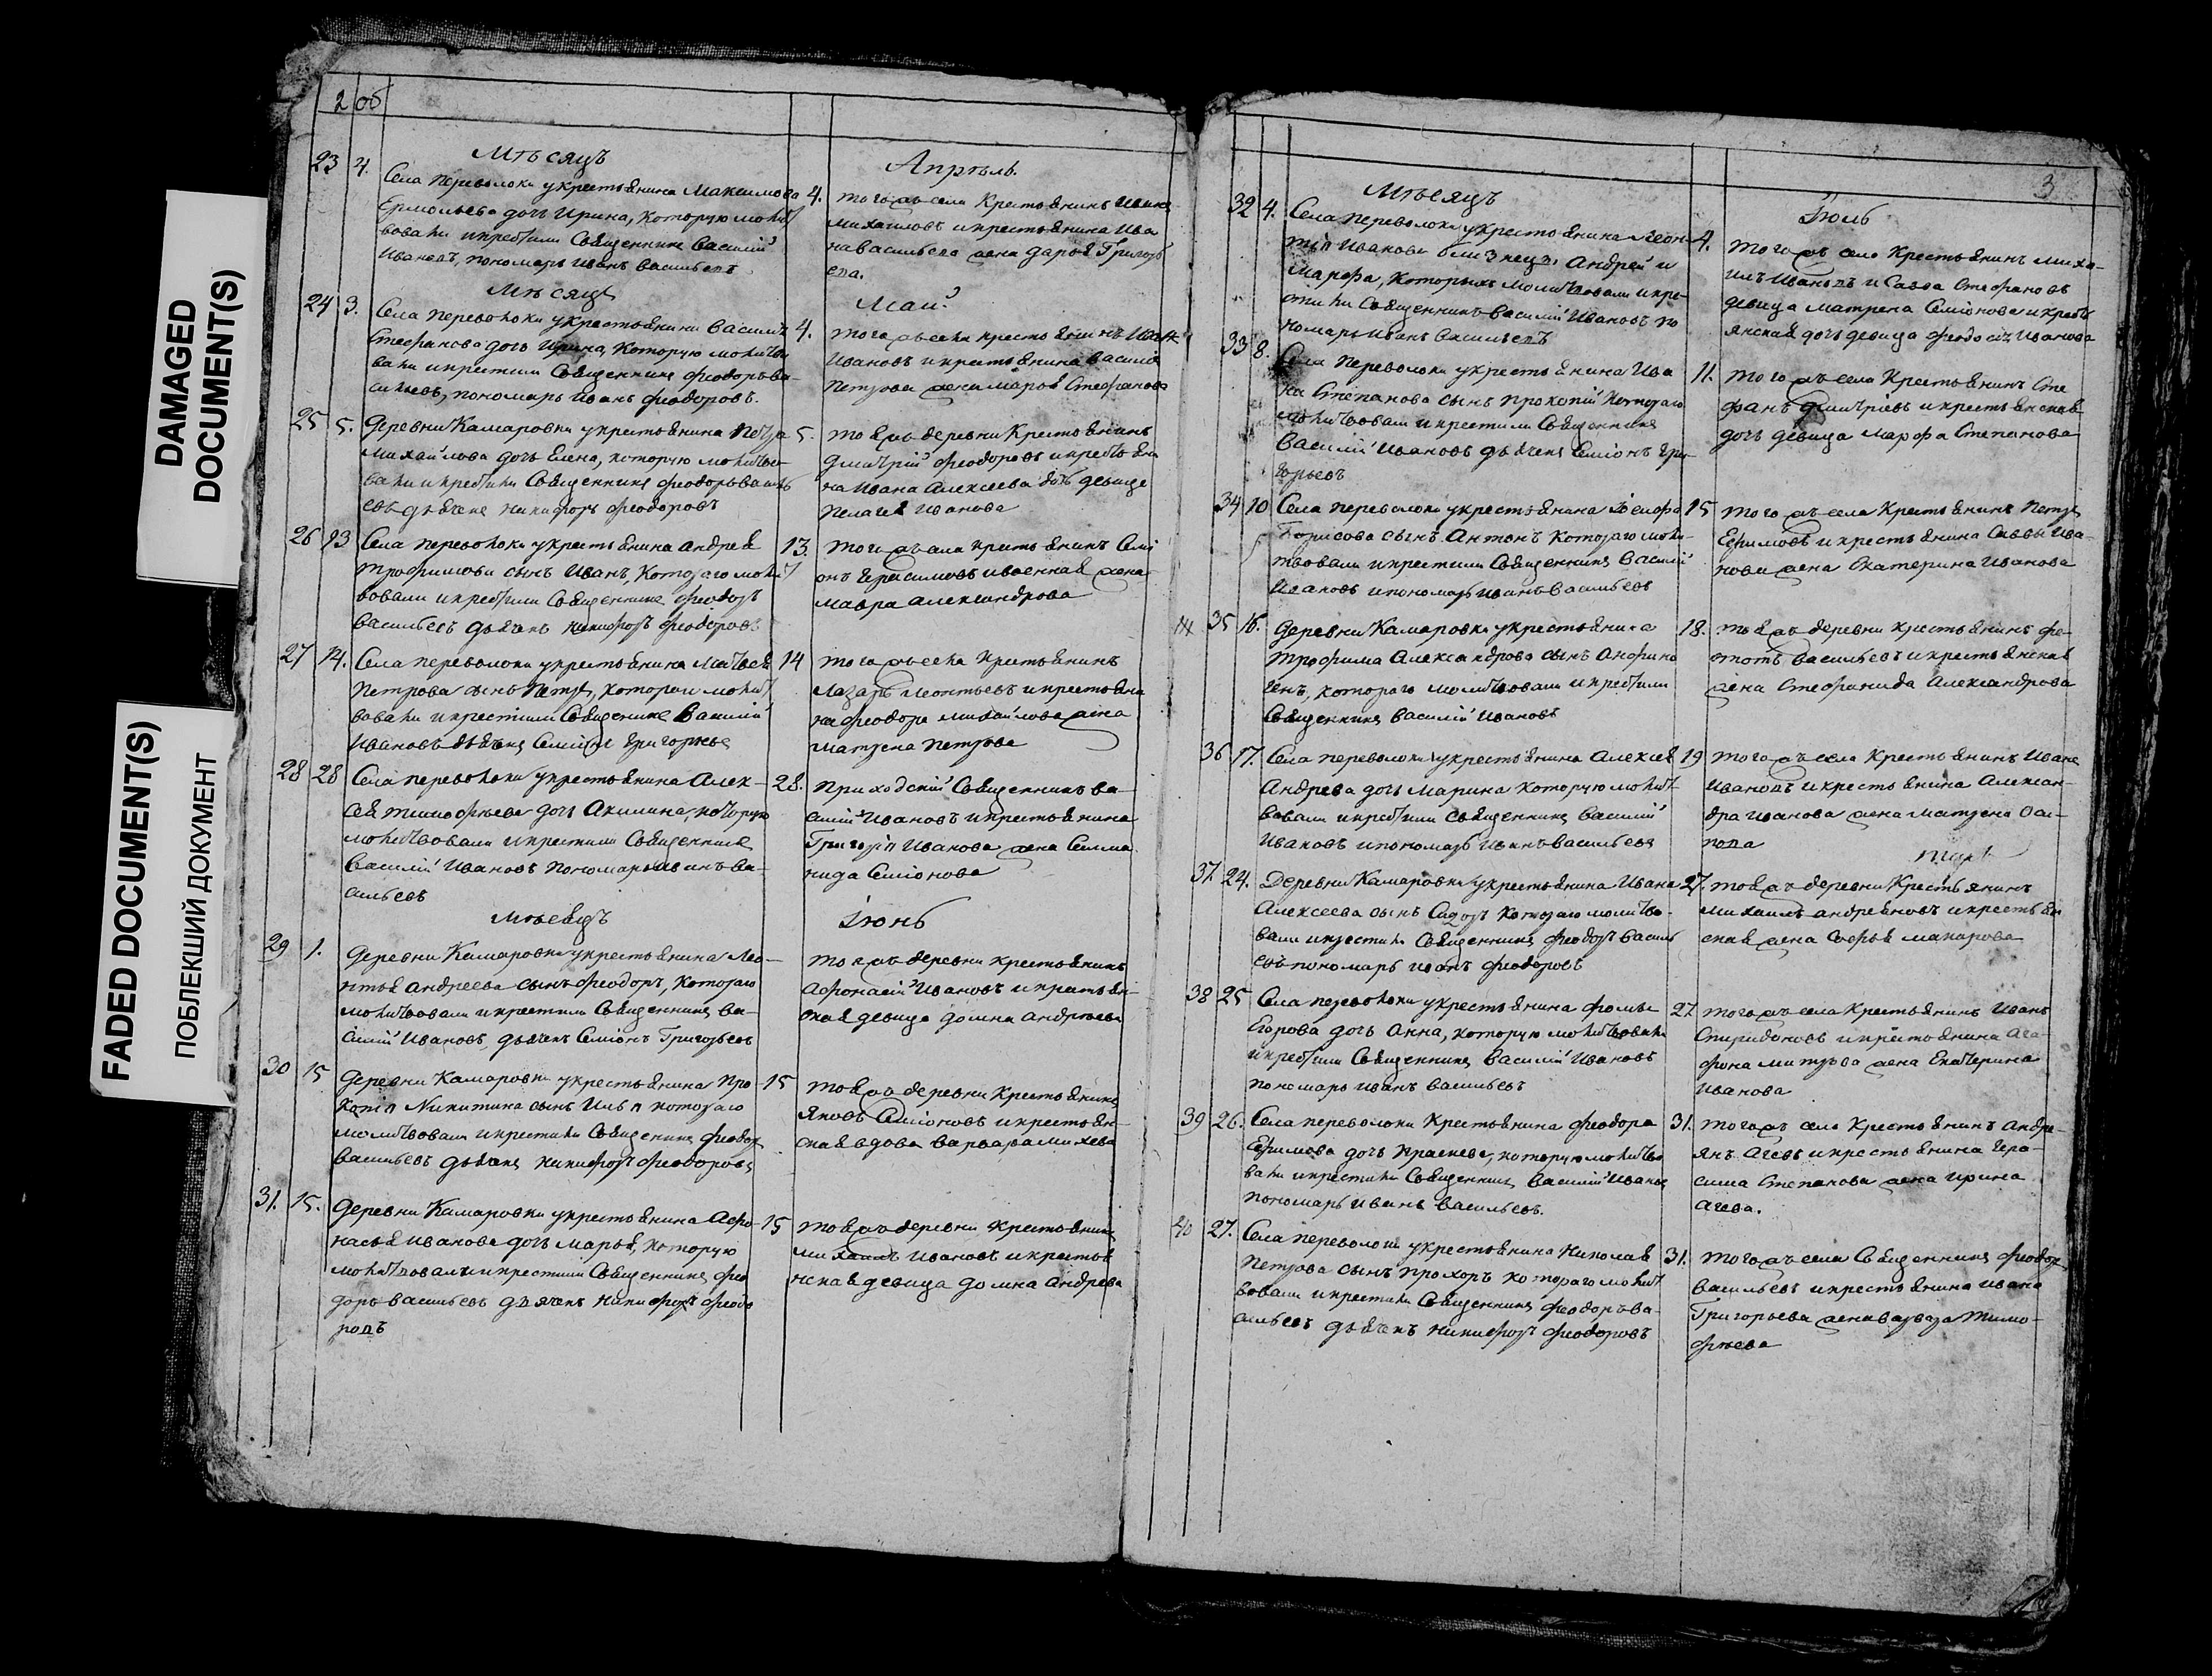 DAMAGED
DOCUMENT(S)
FADED DOCUMENT(S)
ПОБЛЕКШИЙ ДОКУМЕНТ
2 об
Мѣсяцъ
Апрѣль
23 4. Села Переволоки укрестьянина Максима
Ермольева дочь Ирина, которую молит
вовали и крестили Священникъ Василій
Ивановъ, пономарь Иванъ Васильевъ
4. того жъ села Крестьянинъ Иванъ
Михаиловъ и крестьянина Ива
на Васильева жена Дарья Григорь
ева.
Мѣсяцъ
Маій
24 3. Села Переволоки укрестьянина Василья
Стефанова дочь Ирина, которую молитво
вали и крестили Священникъ Феодоръ Ва-
сильевъ, пономарь Иванъ Феодоровъ.
4. того жъ села крестьянинъ
Ивановъ и крестьянина Василія
Петрова жена Стефанова
25 5. Деревни Камаровки укрестьянина Петра
Михайлова дочь Елена, которую молитво-
вали и крестили Священникъ Феодоръ Василь
евъ дьячекъ Никифоръ Феодоровъ
5. тоя жъ деревни Крестьянинъ
Дмитрій Феодоровъ и крестьяни
на Ивана Алексеева дочь девица
Пелагея Иванова
26 13 Села Переволоки укрестьянина Андрея
Трофимова сынъ Иванъ, котораго молит
вовали и крестили Священникъ Феодоръ
Васильевъ дьячекъ Никифоръ Феодоровъ
13. того жъ села крестьянинъ Семі
онъ Герасимовъ и военная жена
Мавра Александрова
27 14. Села Переволоки укрестьянина Матвея
Петрова сынъ Петръ, которои молит
вовали и крестили Священникъ Василій
Ивановъ дьячекъ Семіонъ Григорьевъ
14 того жъ села крестьянинъ
Лазарь Леонтьевъ и крестьяни
на Феодора Михайлова жена
Матрена Петрова
28 28 Села Переволоки укрестьянина Алек-
сея Тимофеева дочь Акилина, которую
молитвовали и крестили Священникъ
Василій Ивановъ пономарь Иванъ Ва-
сильевъ
28. Приходскій Священникъ Ва-
силій Ивановъ и крестьянина
Григорія Иванова жена
Семіонова
Мѣсяцъ
Іюнь
29 1. Деревни Камаровки укрестьянина Лео-
нтья Андреева сынъ Феодоръ, котораго
молитвовали и крестили Священникъ Ва-
силій Ивановъ, дьячекъ Семіонъ Григорьевъ
тоя жъ деревни крестьянинъ
Афонасій Ивановъ и крестьян-
ская девица Домна Андреева
30 15 Деревни Камаровки укрестьянина Про
копія Никитина сынъ Илья котораго
молитвовали и крестили Священникъ Феодоръ
Васильевъ дьячекъ Никифоръ Феодоровъ
15 тоя жъ деревни Крестьянинъ
Яковъ Семіоновъ и крестьян-
ская вдова Варвара Михева
31. 15. Деревни Камаровки укрестьянина Афо-
насья Иванова дочь Марья, которую
молитвовали и крестили Священникъ Фео
доръ Васильевъ дьячекъ Никифоръ Феодо
ровъ
15 тоя жъ деревни крестьянинъ
Михаилъ Ивановъ и крестья
нская девица Домна Андрева
3
Мѣсяцъ
Іюль
32 4. Села Переволоки укрестьянина Леон-
тія Иванова близнецы Андрей и
Марфа, которыхъ молитвовали и кре-
стили Священникъ Василій Ивановъ по
номарь Иванъ Васильевъ
4. того жъ села Крестьянинъ Миха-
илъ Ивановъ и Савва Стефановъ
девица Матрена Семіонова и кресть
янская дочь девица Феодосія Иванова
33 8. Села Переволоки укрестьянина Ива
на Степанова сынъ Прокопій котораго
молитвовали и крестили Священникъ
Василій Ивановъ дьячекъ Семіонъ Гри-
горьевъ
11. того жъ села Крестьянинъ Сте
фанъ Дмитріевъ и крестьянская
дочь девица Марфа Степанова
34 10 Села Переволоки укрестьянина Іосифа
Борисова сынъ Антонъ котораго моли-
твовали и крестили Священникъ Василій
Ивановъ и пономарь Иванъ Васильевъ
15 того жъ села Крестьянинъ Петръ
Ефимовъ и крестьянина Саввы Ива-
нова жена Екатерина Иванова
35 16. Деревни Камаровки укрестьянина
Трофима Александрова сынъ Анфино
генъ, котораго молитвовали и крестили
Священникъ Василій Ивановъ
18. тоя жъ деревни крестьянинъ Фе-
октистъ Васильевъ и крестьянская
жена Стефанида Александрова
36 17. Села Переволоки укрестьянина Алексея
Андрева дочь Марина которую молит-
вовали и крестили Священникъ Василій
Ивановъ и пономарь Иванъ Васильевъ
19 того жъ села Крестьянинъ Иванъ
Ивановъ и крестьянина Алексан-
дра Иванова жена Матрена Оси-
пова
37. 24. Деревни Камаровки укрестьянина Ивана
Алексеева сынъ Сидоръ котораго молитво-
вали и крестили Священникъ Феодоръ Василь
евъ пономарь Иванъ Феодоровъ
27. тоя жъ деревни Крестьянинъ
Михаилъ Андреяновъ и крестьян
ская жена Софья Макарова
38 25 Села Переволоки укрестьянина Фомы
Егорова дочь Анна, которую молитвовали
и крестили Священникъ Василій Ивановъ
пономарь Иванъ Васильевъ
27. того жъ села Крестьянинъ Иванъ
Спиридоновъ и крестьянина Ага-
фона Митрева жена Екатерина
Иванова
39 26. Села Переволоки Крестьянина Феодора
Ефимова дочь Прасковея, которую молитво
вали и крестили Священникъ Василій Ивановъ
пономарь Иванъ Васильевъ.
31. того жъ села Крестьянинъ Андре-
янъ Агевъ и крестьянина Гера-
сима Степанова жена Ирина
Агева.
40 27. Села Переволоки укрестьянина Николая
Петрова сынъ Прохоръ котораго молит
вовали и крестили Священникъ Феодоръ Ва-
сильевъ дьячекъ Никифоръ Феодоровъ
31. того жъ села Священникъ Феодоръ
Васильевъ и крестьянина Ивана
Григорьева жена Варвара Тимо-
феева